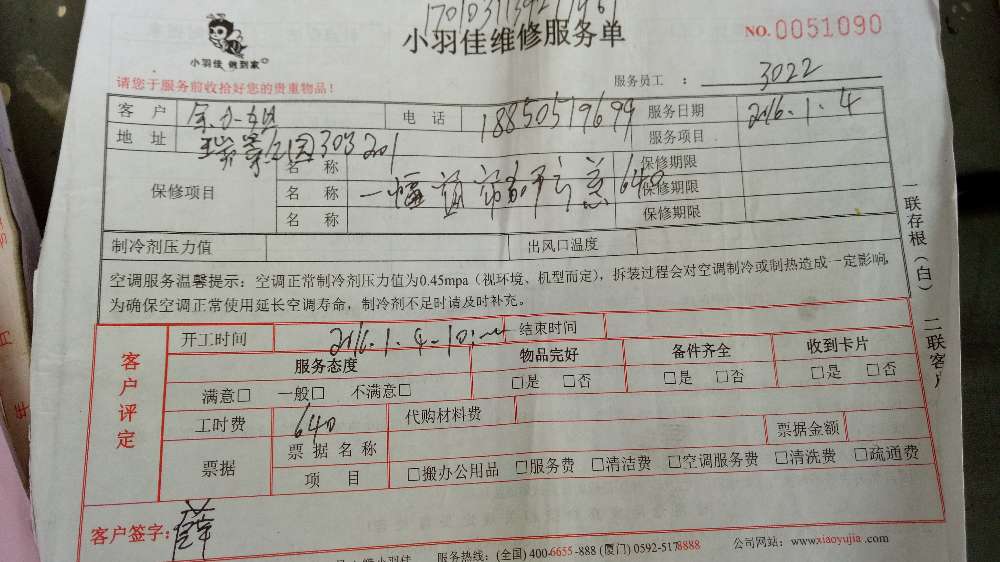 小羽佳 做到家
小羽佳维修服务单
NO.0051090
请您于服务前收拾好您的贵重物品！
服务员工 ： 3022
客 户
电 话 18850519699
服务日期 2016.1.4
地 址 瑞景公园303 201
服务项目
保修项目
名 称
保修期限
名 称
640
保修期限
名 称
保修期限
制冷剂压力值
出风口温度
空调服务温馨提示：空调正常制冷剂压力值为0.45mpa（视环境、机型而定），拆装过程会对空调制冷或制热造成一定影响，
为确保空调正常使用延长空调寿命，制冷剂不足时请及时补充。
一联存根（白） 二联客户
客户评定
开工时间 2016.1.4-10:
结束时间
服务态度
物品完好
备件齐全
收到卡片
满意□ 一般□ 不满意□
□是 □否
□是 □否
□是 □否
工时费 640
代购材料费
票据
票 据 名 称
票据金额
项 目
□搬办公用品 □服务费 □清洁费 □空调服务费 □清洗费 □疏通费
客户签字：薛
小羽佳 服务热线：(全国) 400-6655-888 (厦门) 0592-5178888 公司网站：www.xiaoyujia.com